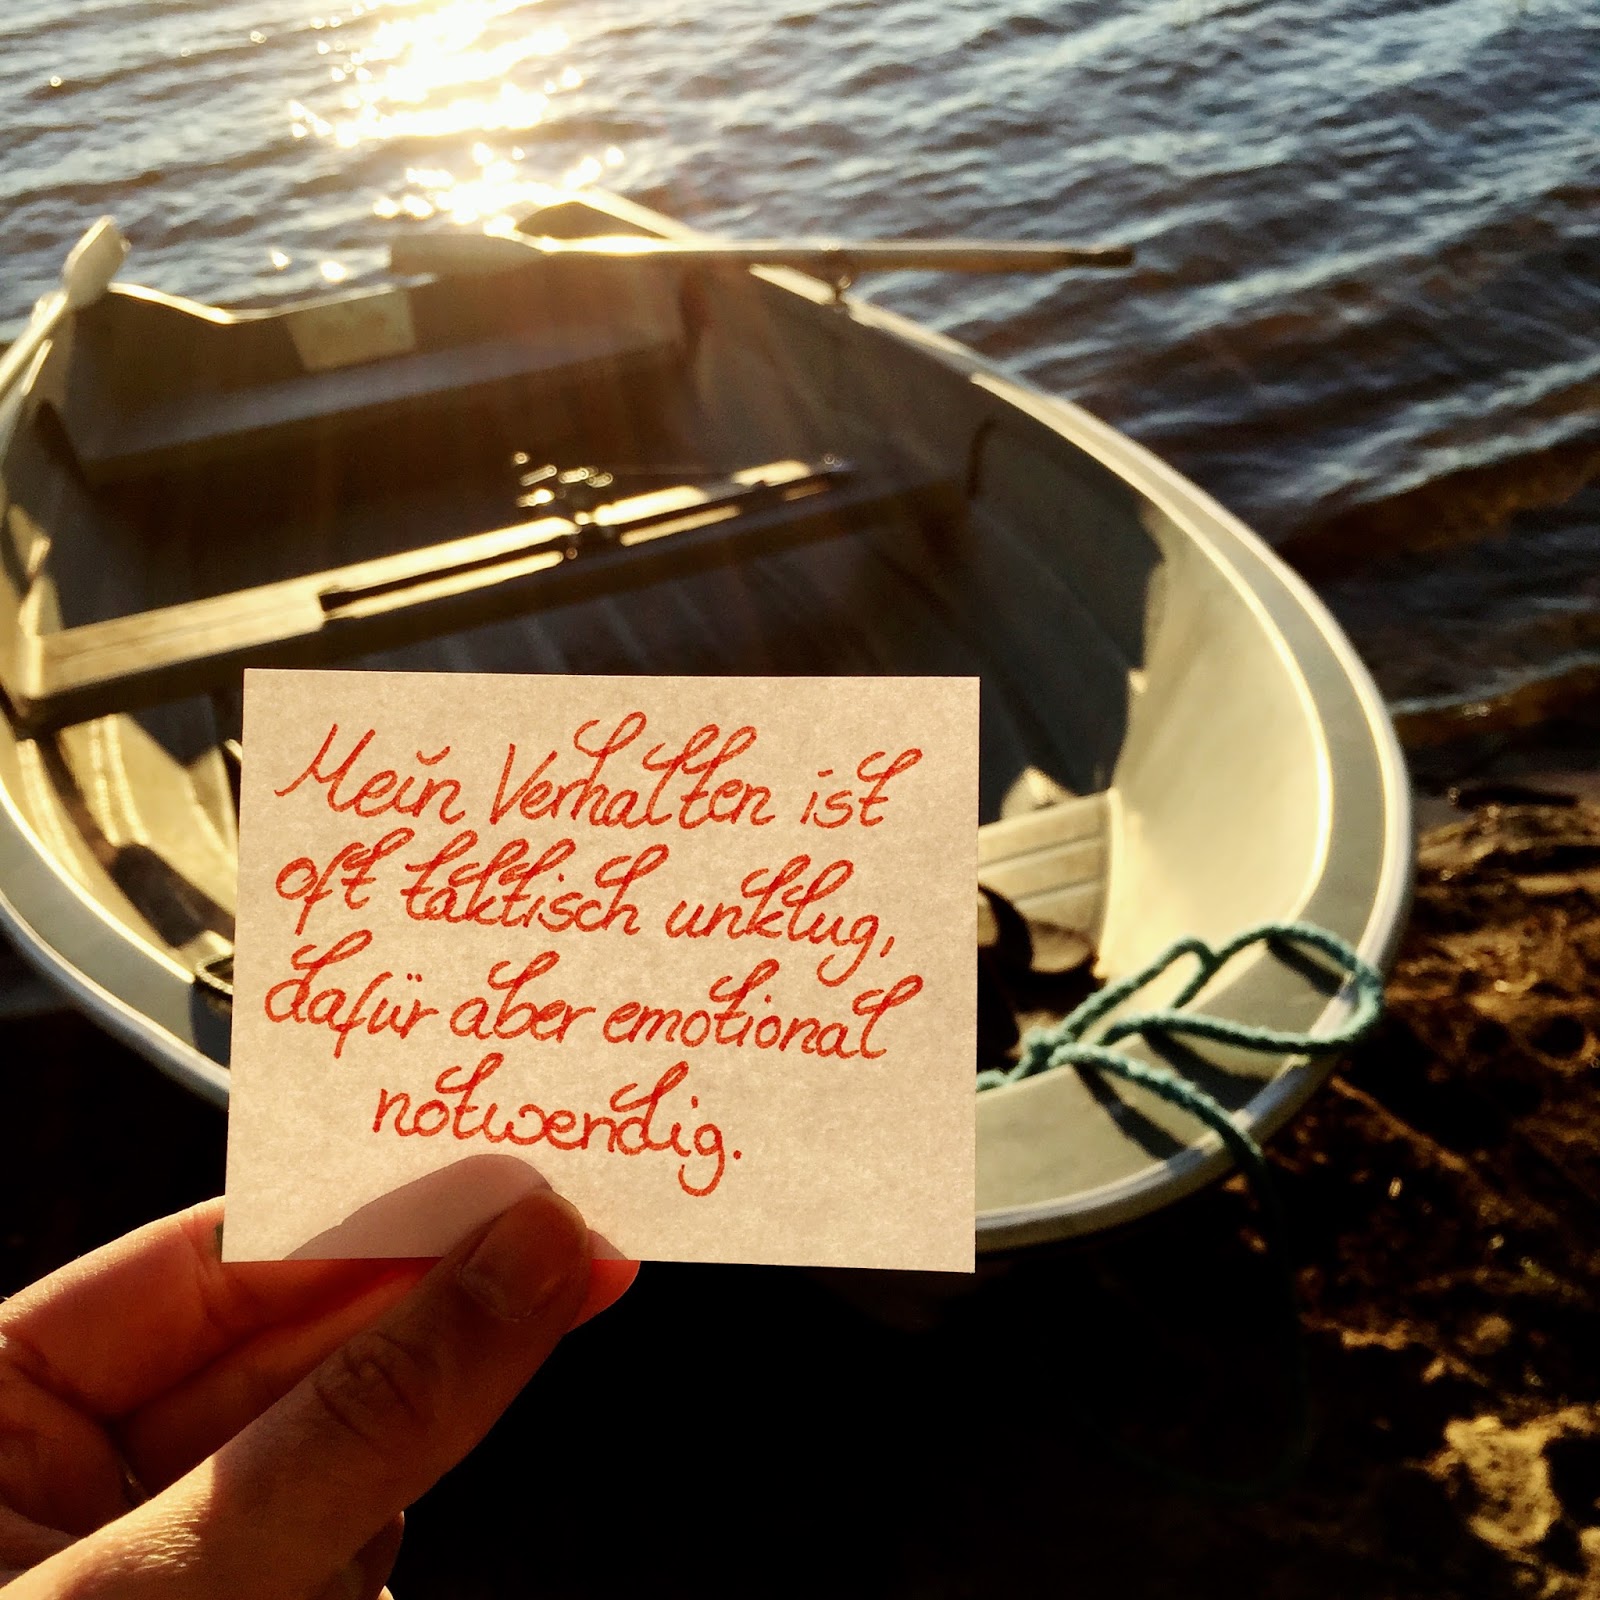 Mein Verhalten ist
oft taktisch unklug,
dafür aber emotional
notwendig.